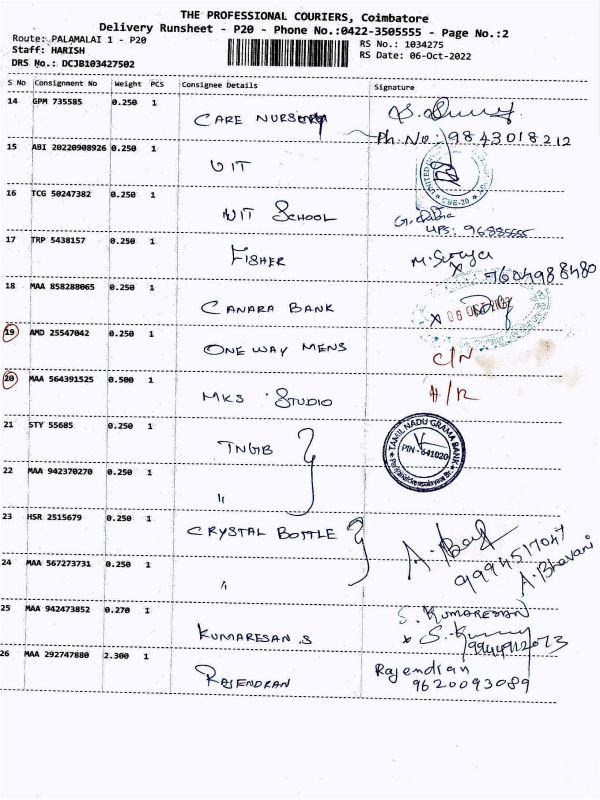 THE PROFESSIONAL COURIERS, Coimbatore
Delivery Runsheet - P20 - Phone No.:0422-3505555 - Page No.:2
Route: PALAMALAI 1 - P20
Staff: HARISH
DRS No.: DCJB103427502
RS No.: 1034275
RS Date: 06-Oct-2022
S No Consignment No Weight PCS Consignee Details Signature
14 GPM 735585 0.250 1
CARE NURSERY
Ph. No: 9843018212
15 ABI 20220908926 0.250 1
UIT
CBE-20
16 TCG 50247382 0.250 1
UIT SCHOOL
17 TRP 5438157 0.250 1
FISHER
M. Surya
7604988480
18 MAA 858288065 0.250 1
CANARA BANK
X 06 OCT
19 AMD 25547042 0.250 1
ONE WAY MENS C/N
20 MAA 564391525 0.500 1
MKS STUDIO H/R
21 STY 55685 0.250 1
TNGB
TAMIL NADU GRAMA BANK
PIN - 641020
22 MAA 942370270 0.250 1
"
23 HSR 2515679 0.250 1
CRYSTAL BOTTLE
9994517047
A. Bhavani
24 MAA 567273731 0.250 1
"
25 MAA 942473852 0.270 1
S. KUMARESAN
KUMARESAN.S
26 MAA 292747880 2.300 1
RAJENDRAN
Rajendran
9620093089